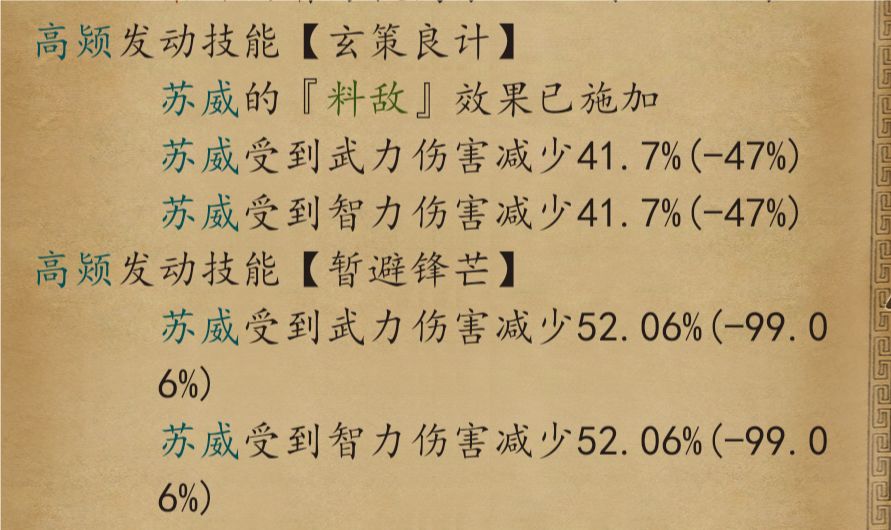 高颎发动技能【玄策良计】
苏威的『料敌』效果已施加
苏威受到武力伤害减少41.7%(-47%)
苏威受到智力伤害减少41.7%(-47%)
高颎发动技能【暂避锋芒】
苏威受到武力伤害减少52.06%(-99.0
6%)
苏威受到智力伤害减少52.06%(-99.0
6%)